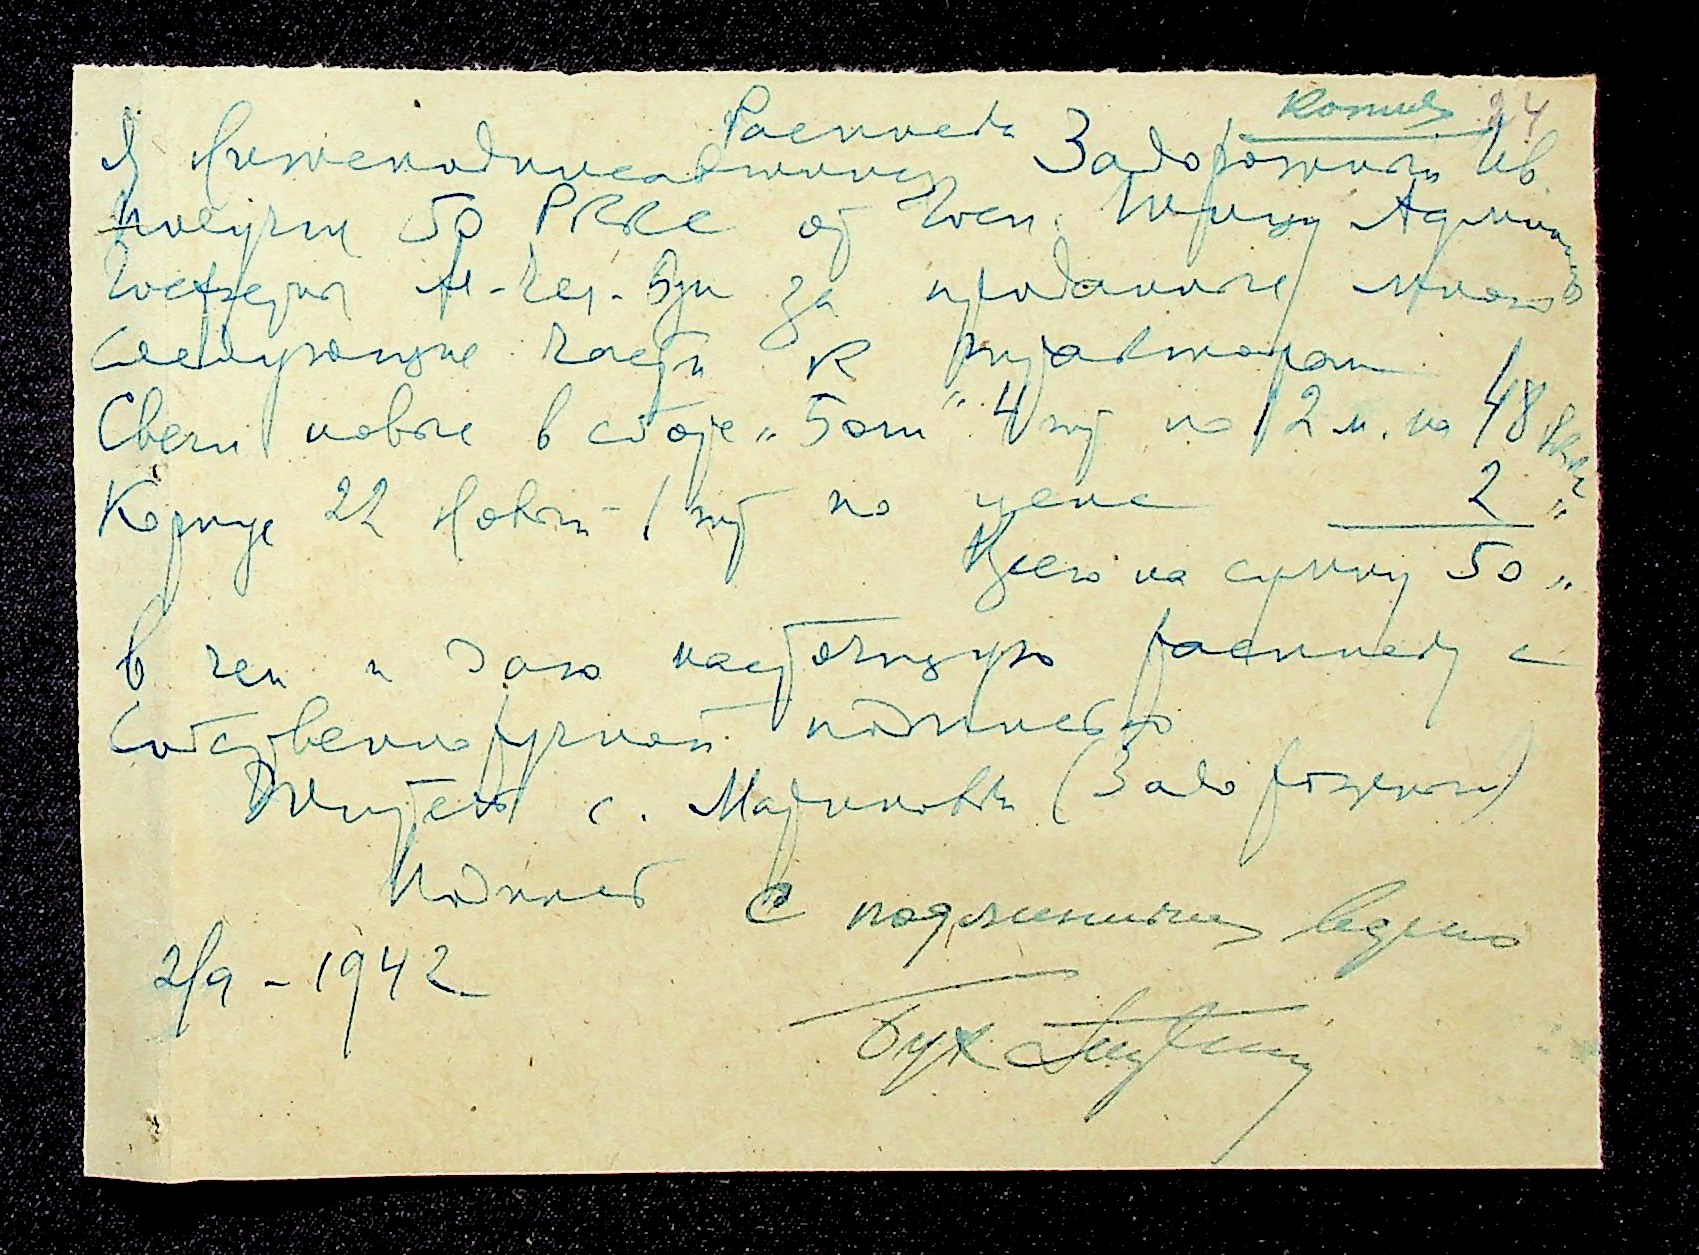 Копия 24
Расписка
Я нижеподписавшийся Задорожный Ив.
получил 50 РККС от Госп.
за проданные мною
следующие части к тракторам
Свечи новые в сборе „Бош“ 4 шт по 12 м. на 48
Корпус 22 новый - 1 шт по цене 2 „
Всего на сумму 50 „
в чем и даю настоящую расписку с
собственноручной подписью
Житель с. Мариновки (Задорожный)
Подпись С подлинным верно
2/9 - 1942
Бух